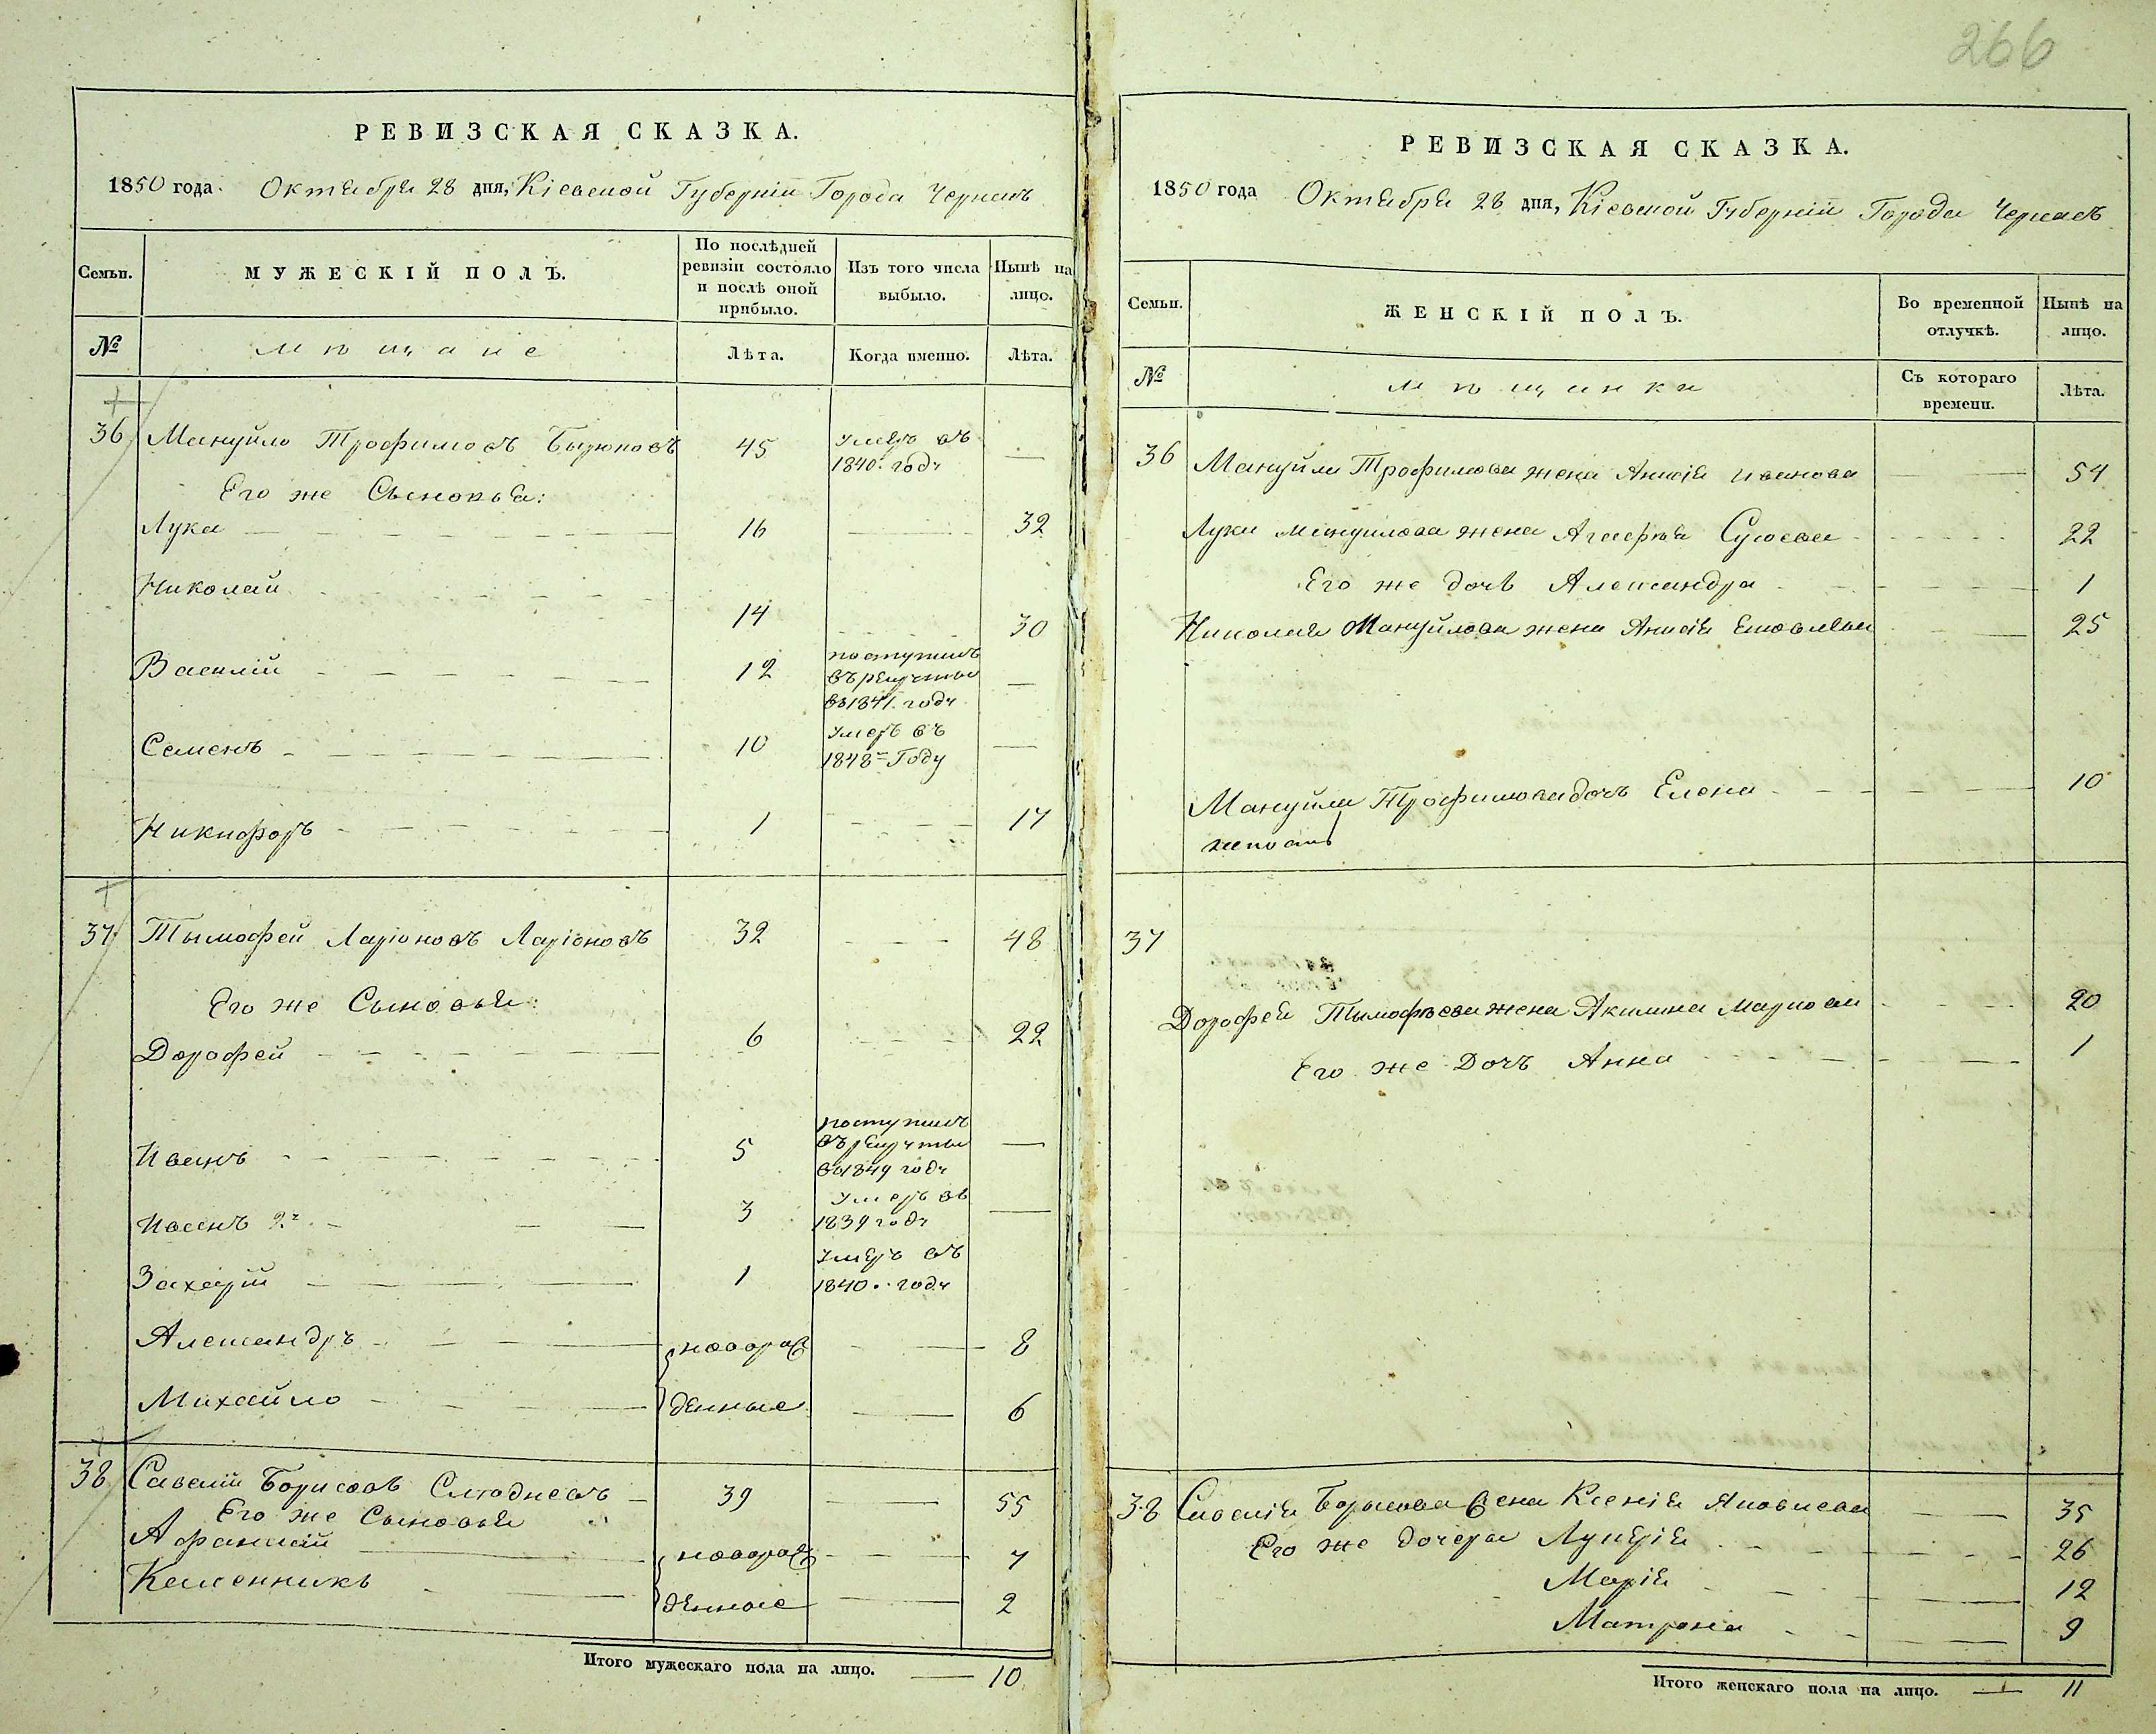 266
РЕВИЗСКАЯ СКАЗКА.
1850 года. Октября 28 дня, Кіевской Губерніи Города Черкасъ
Семьи. МУЖЕСКІЙ ПОЛЪ. По послѣдней ревизіи состояло и послѣ оной прибыло. Изъ того числа выбыло. Нынѣ на лицо.
№ мѣщане Лѣта. Когда именно. Лѣта.
36 Мануйло Трофимовъ Бырюковъ 45 умеръ въ 1840. годѵ —
Его же Сыновья:
Лука 16 — 32
Николай 14 30
Василій 12 поступилъ въ рекруты въ 1841. годѵ —
Семенъ 10 умеръ въ 1848м Году —
Никифоръ 1 17
37 Тымофей Ларіоновъ Ларіоновъ 32 48
Его же Сыновья:
Дорофей 6 22
Иванъ 5 поступилъ въ рекруты въ 1849 годѵ —
Иванъ 2й 3 умеръ въ 1839 годѵ —
Захарій 1 умеръ въ 1840. годѵ
Александръ новорож 8
Михайло денные — 6
38 Савелій Борисовъ Слюдневъ 39 — 55
Его же Сыновья
Афанасій новорож 7
денные — 2
Итого мужескаго пола на лицо. — 10
РЕВИЗСКАЯ СКАЗКА.
1850 года Октября 28 дня, Кіевской Губерніи Города Черкасъ
Семьи. ЖЕНСКІЙ ПОЛЪ. Во временной отлучкѣ. Нынѣ на лицо.
№ мѣщанки Съ котораго времени. Лѣта.
36 Мануйла Трофимова жена Анисія Иванова — 54
Луки Мануилова жена Агафія 22
Его же дочь Александра 1
Николая Мануйлова жена Анисія Яковлева 25
Мануйла Трофимова дочь Елена 10
37
Дорофея Тымофѣева жена Акилина Маркова 20
Его же Дочь Анна 1
38 Савелія Борисова жена Ксенія Яковлева — 35
Его же дочери Лукерія 26
Марія 12
Матрона 9
Итого женскаго пола на лицо. — 11